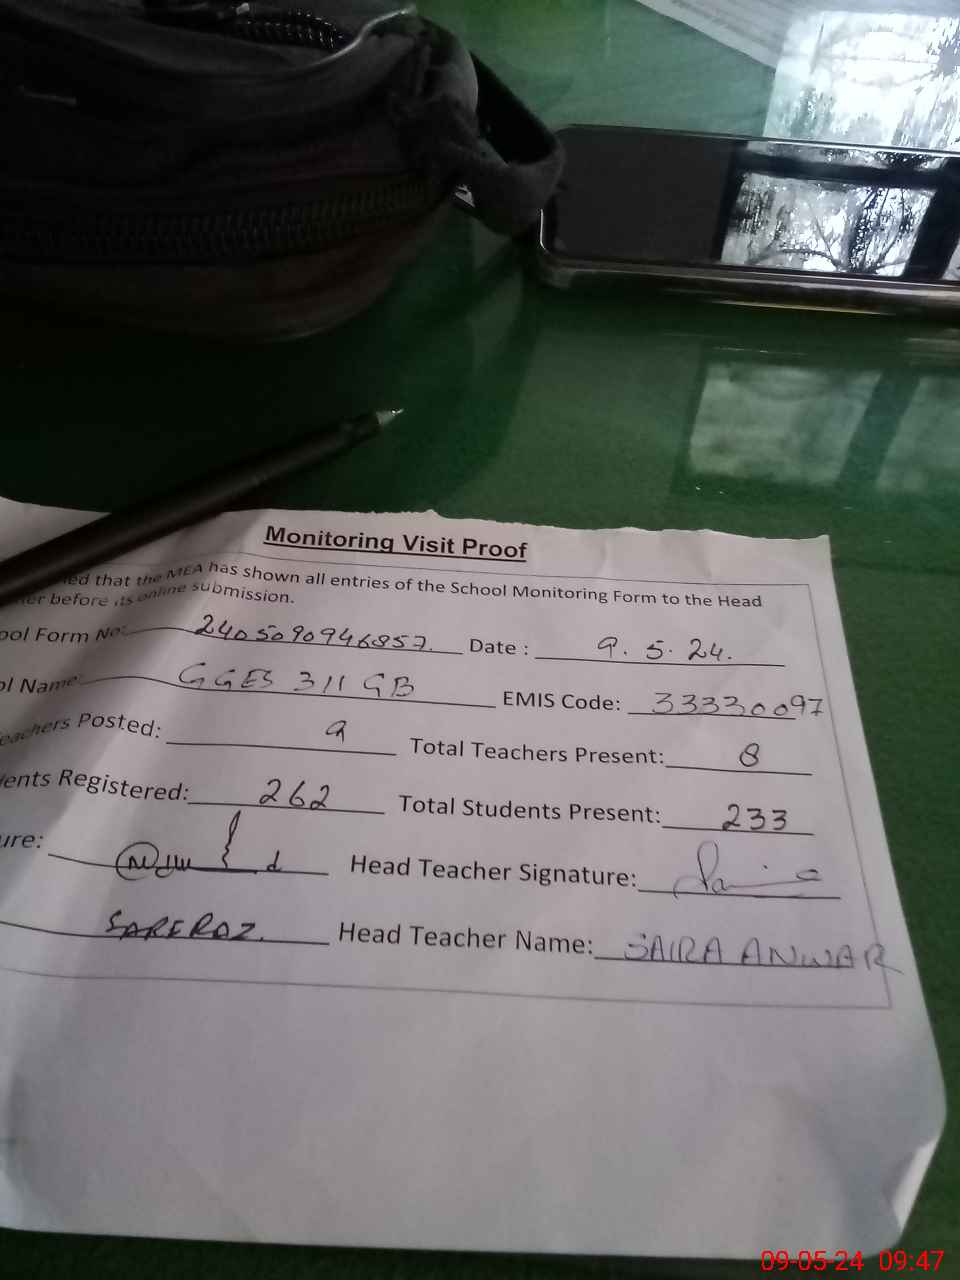 Monitoring Visit Proof
ed that the MEA has shown all entries of the School Monitoring Form to the Head
er before its online submission.
ool Form No: 2405090946857. Date : 9. 5. 24.
ol Name: GGES 311 GB EMIS Code: 33330097
eachers Posted: 9 Total Teachers Present: 8
ents Registered: 262 Total Students Present: 233
ure: Head Teacher Signature:
SARFROZ. Head Teacher Name: SAIRA ANWAR
09-05-24 09:47